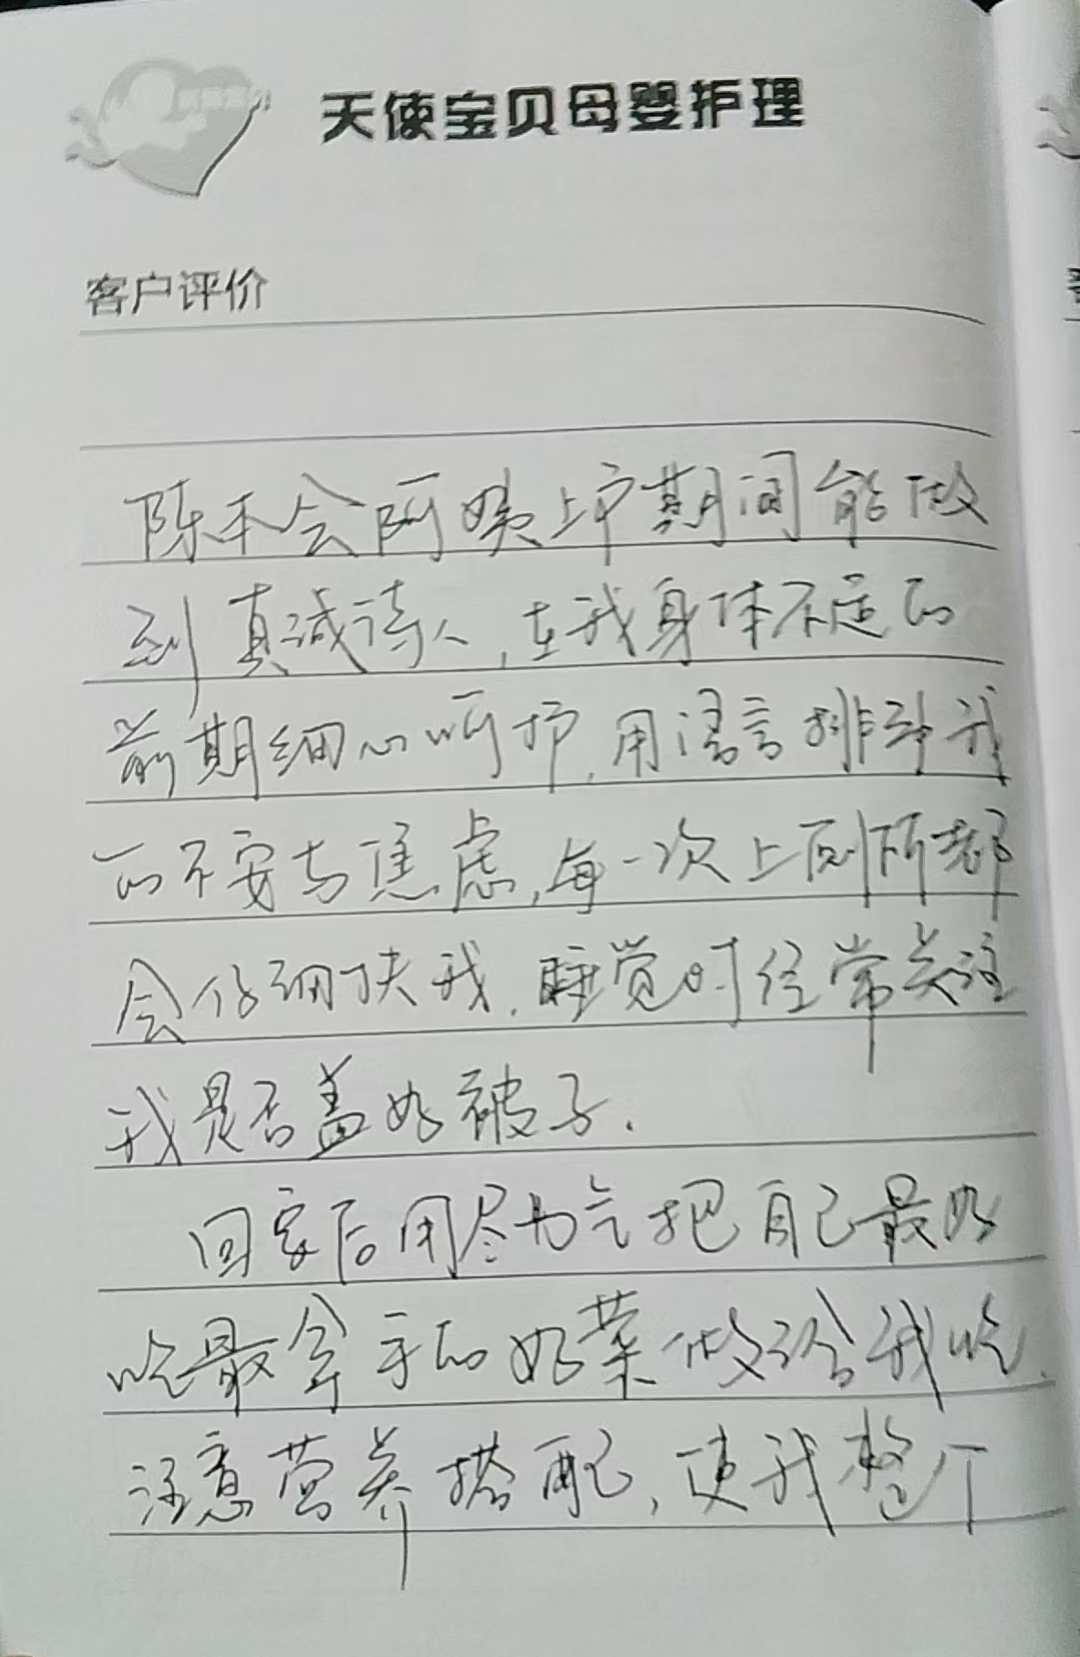 天使宝贝母婴护理
客户评价
陈禾会阿姨上户期间能做
到真诚待人，在我身体不适的
前期细心呵护，用语言排解我
的不安与焦虑，每一次上厕所都
会仔细扶我，睡觉时经常关注
我是否盖好被子。
回家后用尽力气把自己最好
吃最拿手的好菜做给我吃，
注意营养搭配，使我整个